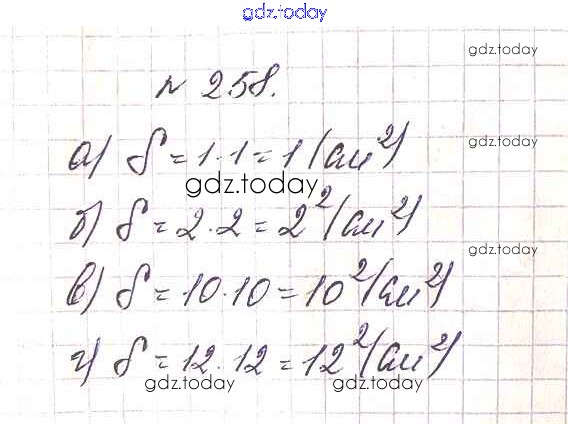 gdz.today
gdz.today
№ 258.
gdz.today
а) S = 1 · 1 = 1 (см²)
gdz.today
б) S = 2 · 2 = 2² (см²)
gdz.today
в) S = 10 · 10 = 10² (см²)
г) S = 12 · 12 = 12² (см²)
gdz.today
gdz.today